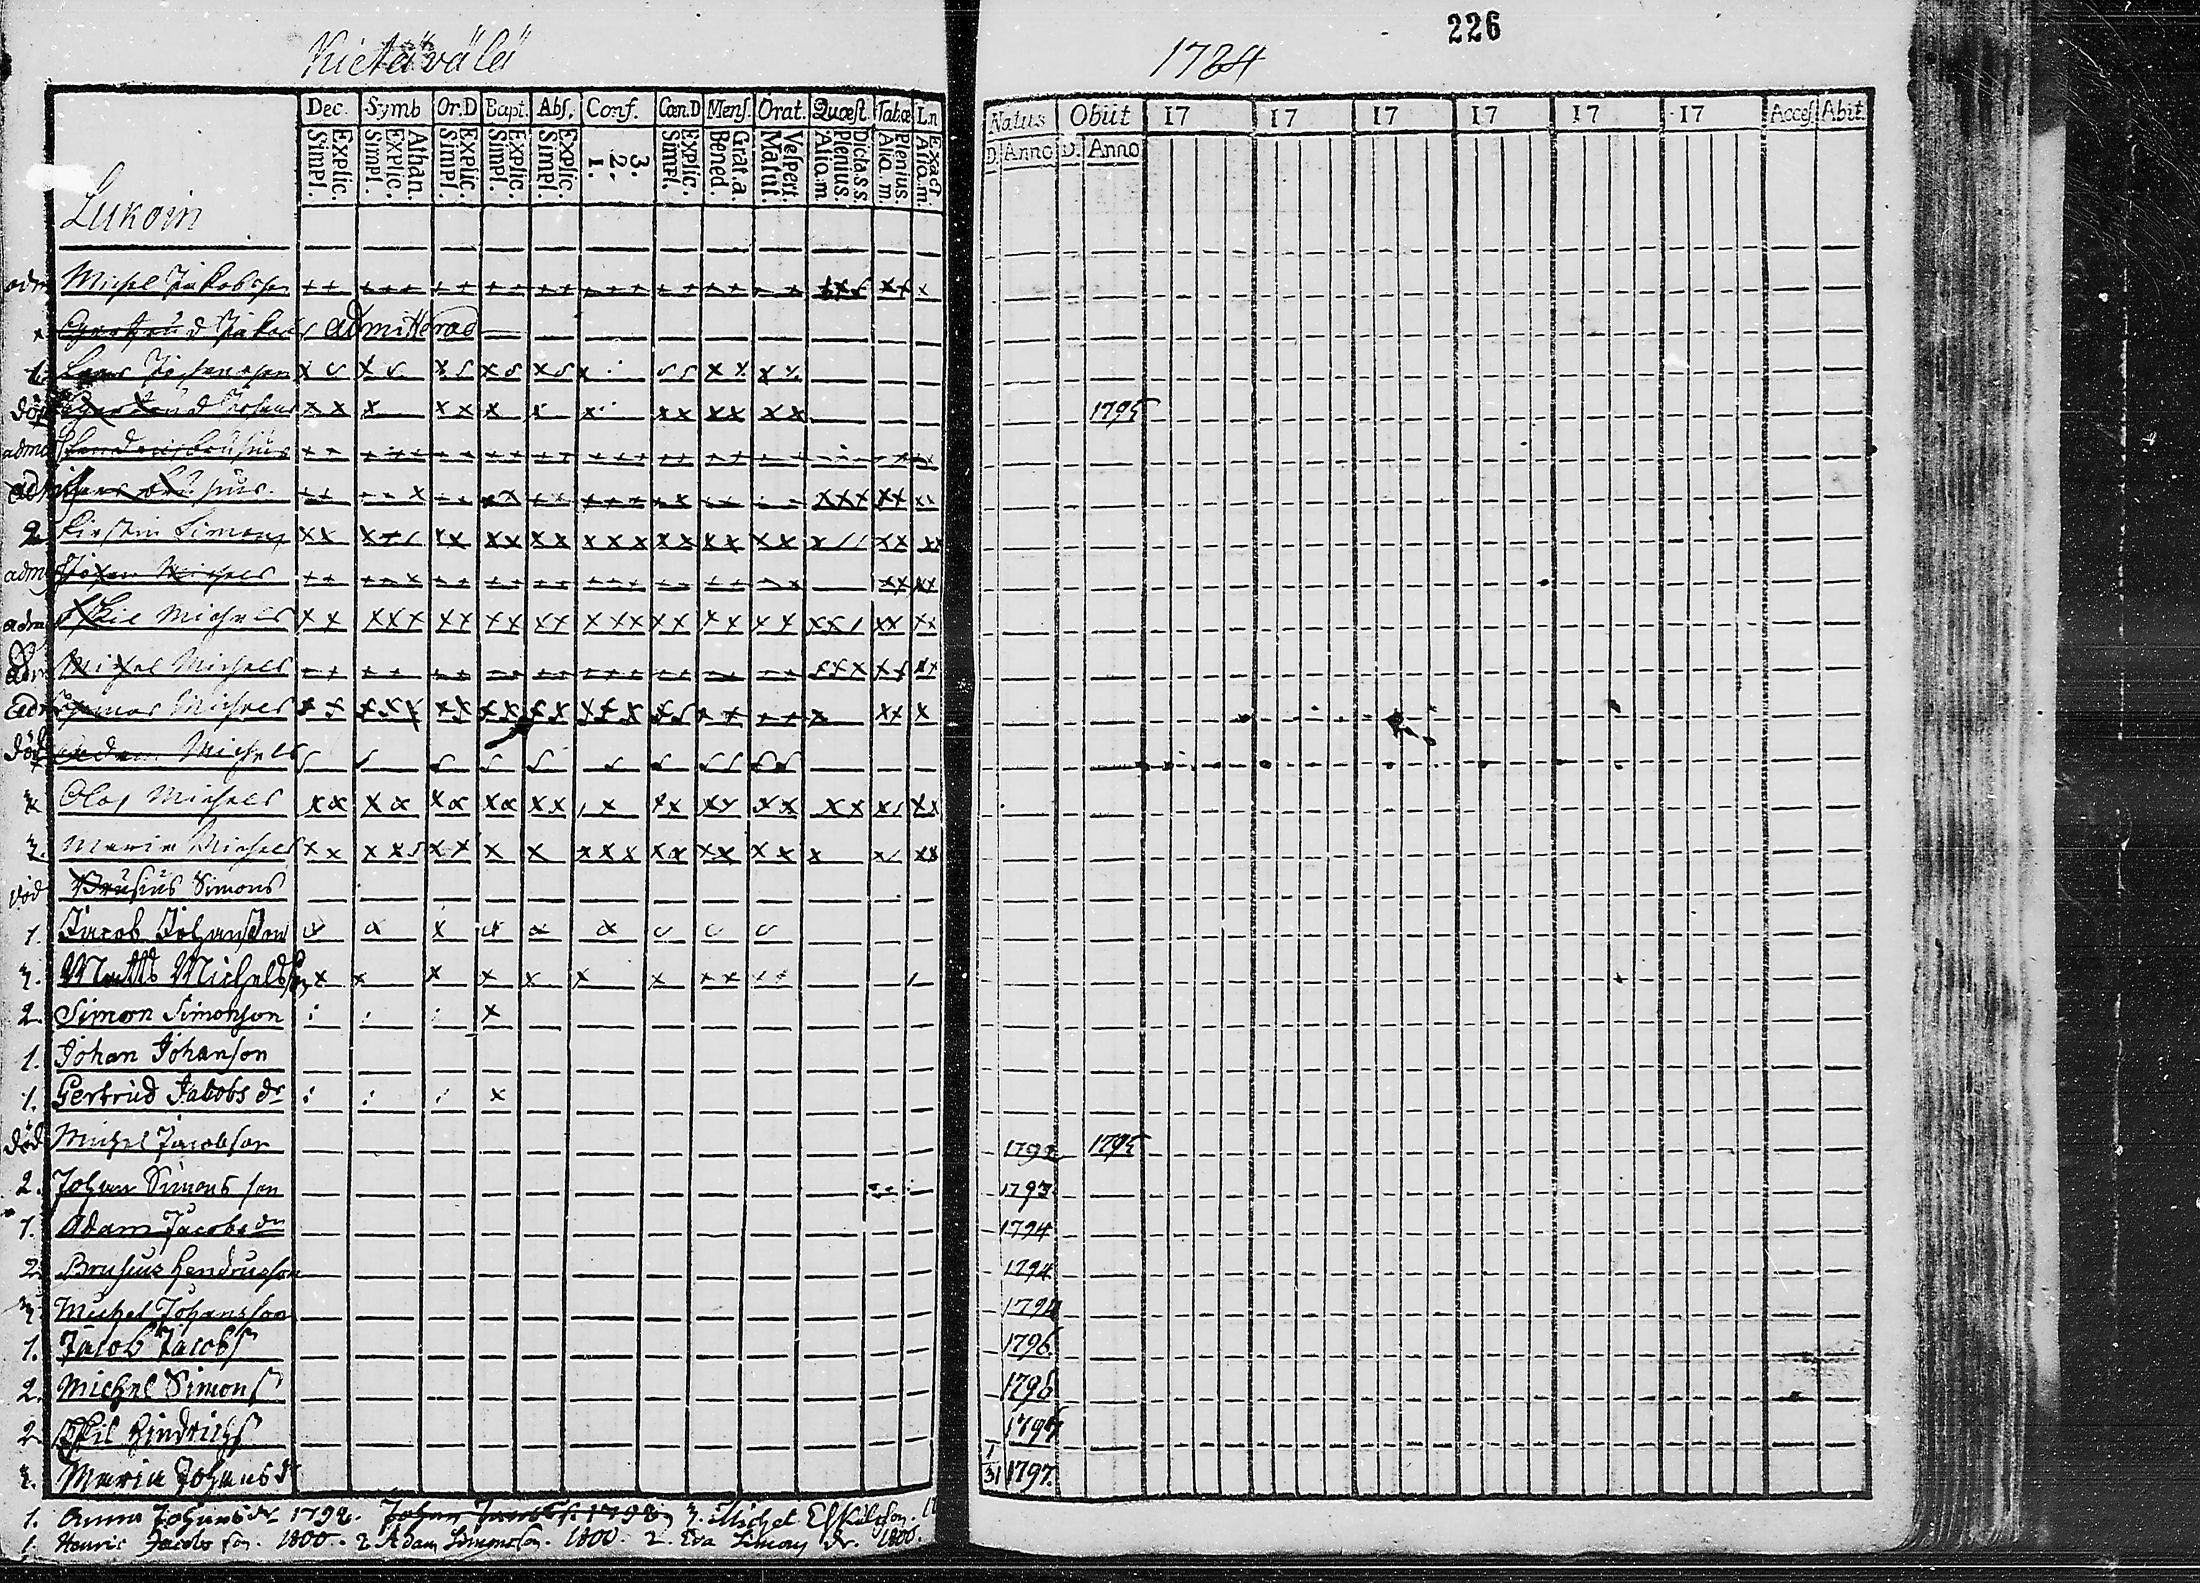 226
Kietävälä
1784
Dec. Symb Or.D Bapt. Abs. Conf. Cœn.D Mens. Orat. Quæst. Tab.œ In
Explic. Simpl. Athan. Explic. Simpl. Explic. Simpl. Explic. Simpl. Explic. Simpl. 3. 2. 1. Explic. Simpl. Grat.a. Bened Vespert. Matut. Dicta.s.s. Plenius. Alio.m Plenius. Alio.m Exact Alio.m.
Natus Obiit 17 17 17 17 17 17 Accej Abit.
D. Anno D. Anno
Lukoin
adm Michel Jakobsson
x Gertrud Jakobs admitterad
Lars Johansson
död Gertrud Johans 1795
adm Hendrich Brusius
adm Brusius
2 Kirstin Simons
adm Johan Michels
adm Eskil Michels
adm Michel Michels
adm Thomas Michels
död Adam Michels
Olof Michels
3. Maria Michels
vid Brusius Simons
1. Jacob Johansson
3. Matts Michelsson
2. Simon Simonson
1. Johan Johanson
1. Gertrud Jacobs dr
död Michel Jacobson 1792 1795
2. Johan Simons son 1793
1. Adam Jacobs 1794
2 Brusius Hendricsson 1794
3 Michel Johansson 1794
1. Jacob Jacobs 1796
2. Michel Simons 1796
2. Eskil Hindrichs
3. Maria Johans dr 1/31 1797.
1. Anna Johans dr 1798. Johan Jacobs 1798 3. Michel Eskilsson.
1. Henric Jacobs son. 1800. 2 Adam Simonson. 1800. 2. Eva Simons dr. 1800.